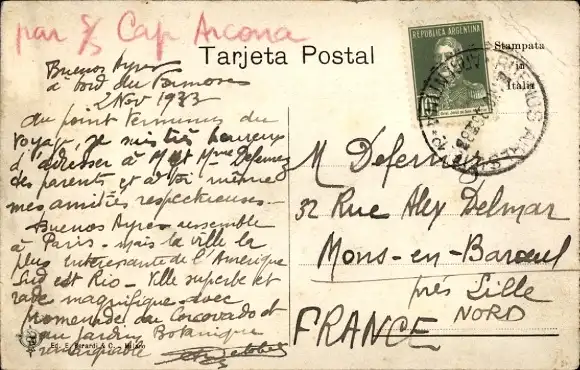 par S/S Cap Arcona
Tarjeta Postal
REPUBLICA ARGENTINA
Stampata
in
Italia
BUENOS AIRES
Buenos Ayres
à bord du Formose
2 Nov 1933
Au point terminus du
voyage, je suis très heureux
d'adresser à M et Mme
des parents et à toi même
mes amitiés respectueuses -
Buenos Ayres ressemble
à Paris - mais la ville la
plus intéressante de l'Amérique
Sud est Rio - Ville superbe et
rade magnifique avec
promenade au Corcovado et
au Jardin Botanique
remarquable
M
32 Rue Alex Delmar
Mons-en-Barœul
près Lille
NORD
FRANCE
Ed. F. Berardi & C. - Milano